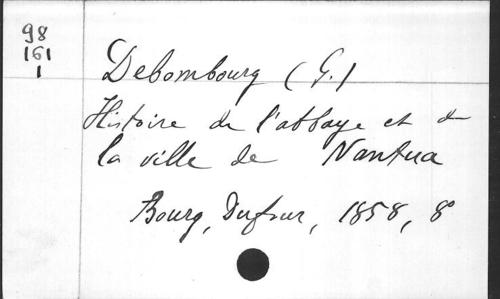 98
161
1
Debombourg (G.)
Histoire de l'abbaye et de
la ville de Nantua
Bourg, Dufour, 1858, 8°